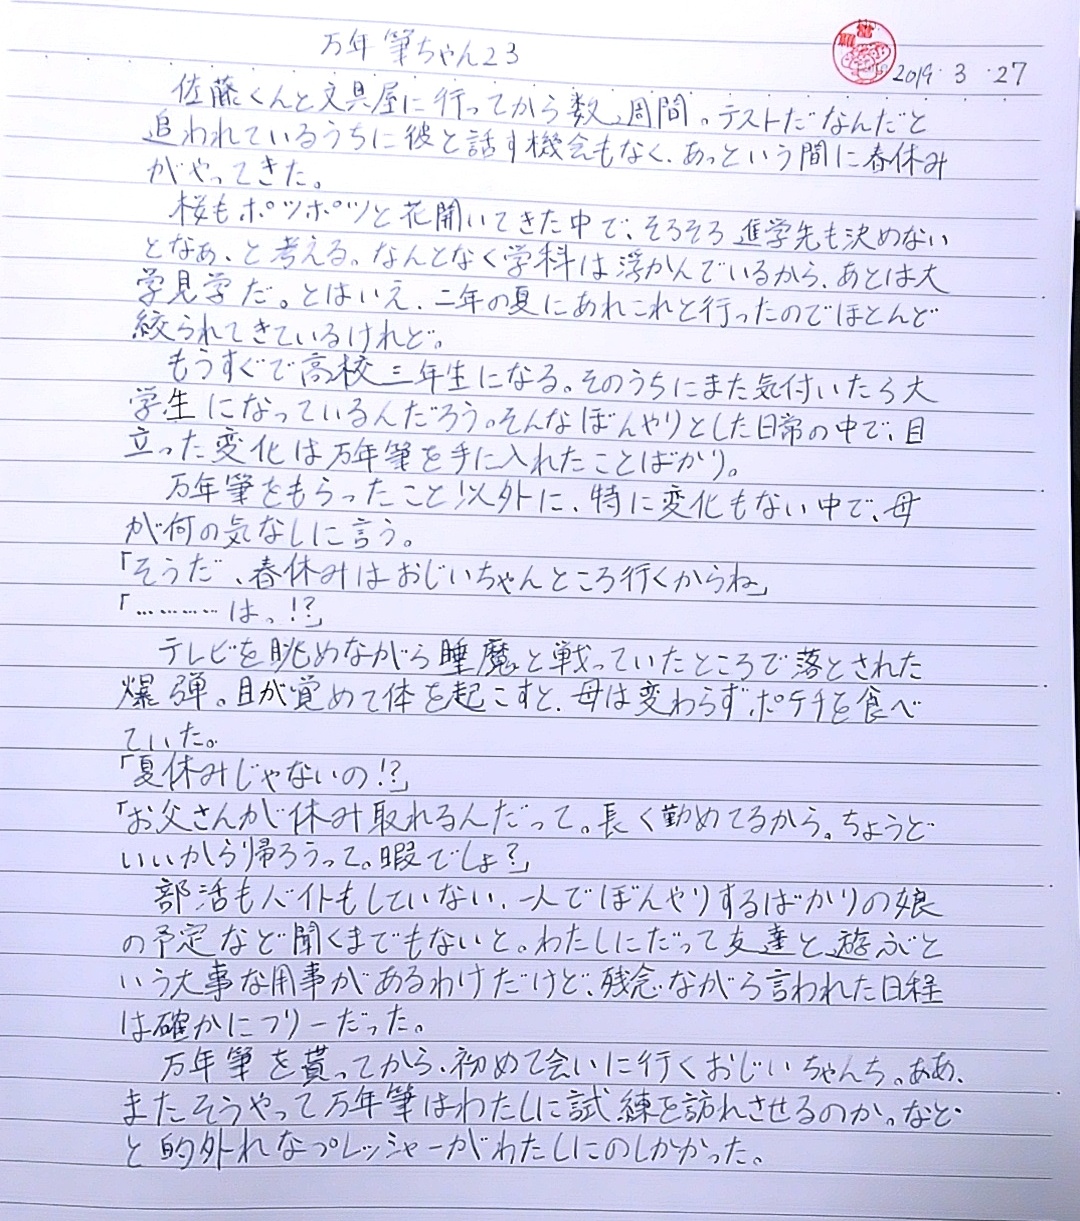 万年筆ちゃん23
2019.3.27
佐藤くんと文具屋に行ってから数週間。テストだなんだと
追われているうちに彼と話す機会もなく、あっという間に春休み
がやってきた。
桜もポツポツと花開いてきた中で、そろそろ進学先も決めない
となぁ、と考える。なんとなく学科は浮かんでいるから、あとは大
学見学だ。とはいえ、二年の夏にあれこれと行ったのでほとんど
絞られてきているけれど。
もうすぐで高校三年生になる。そのうちにまた気付いたら大
学生になっているんだろう。そんなぼんやりとした日常の中で、目
立った変化は万年筆を手に入れたことばかり。
万年筆をもらったこと以外に、特に変化もない中で、母
が何の気なしに言う。
「そうだ、春休みはおじいちゃんところ行くからね」
「…………は、!?」
テレビを眺めながら睡魔と戦っていたところで落とされた
爆弾。目が覚めて体を起こすと、母は変わらずポテチを食べ
ていた。
「夏休みじゃないの!?」
「お父さんが休み取れるんだって。長く勤めてるから。ちょうど
いいから帰ろうって。暇でしょ?」
部活もバイトもしていない、一人でぼんやりするばかりの娘
の予定など聞くまでもないと。わたしにだって友達と遊ぶと
いう大事な用事があるわけだけど、残念ながら言われた日程
は確かにフリーだった。
万年筆を貰ってから、初めて会いに行くおじいちゃんち。ああ、
またそうやって万年筆はわたしに試練を訪れさせるのか。など
と的外れなプレッシャーがわたしにのしかかった。